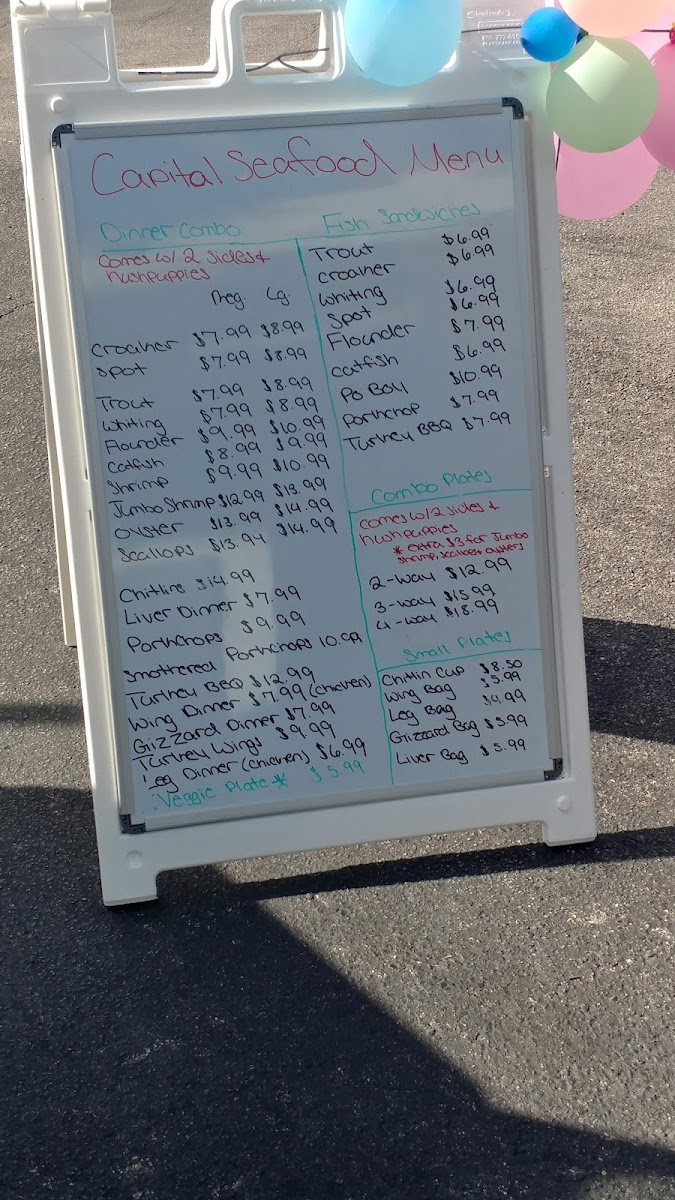 Capital Seafood Menu
Dinner Combo
Comes w/ 2 sides &
hushpuppies
Reg. Lg.
Croaker $7.99 $8.99
Spot $7.99 $8.99
Trout $7.99 $8.99
Whiting $7.99 $8.99
Flounder $9.99 $10.99
Catfish $8.99 $9.99
Shrimp $9.99 $10.99
Jumbo Shrimp $12.99 $13.99
Oyster $13.99 $14.99
Scallops $13.94 $14.99
Chitlins $14.99
Liver Dinner $7.99
Porkchops $9.99
Smothered Porkchops 10.99
Turkey BBQ $12.99
Wing Dinner $7.99 (chicken)
Gizzard Dinner $7.99
Turkey Wings $9.99
Leg Dinner (chicken) $6.99
Veggie Plate* $5.99
Fish Sandwiches
Trout $6.99
Croaker $6.99
Whiting $6.99
Spot $6.99
Flounder $7.99
Catfish $6.99
Po Boy $10.99
Porkchop $7.99
Turkey BBQ $7.99
Combo Plates
Comes w/ 2 sides &
hushpuppies
* extra $3 for Jumbo
Shrimp, scallops & oysters
2-way $12.99
3-way $15.99
4-way $18.99
Small Plates
Chitlin Cup $8.50
Wing Bag $5.99
Leg Bag $4.99
Gizzard Bag $5.99
Liver Bag $5.99